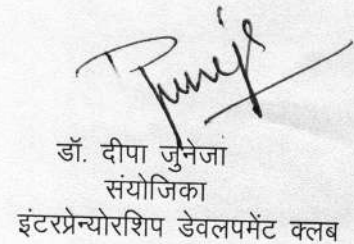 डॉ. दीपा जुनेजा
संयोजिका
इंटरप्रेन्योरशिप डेवलपमेंट क्लब